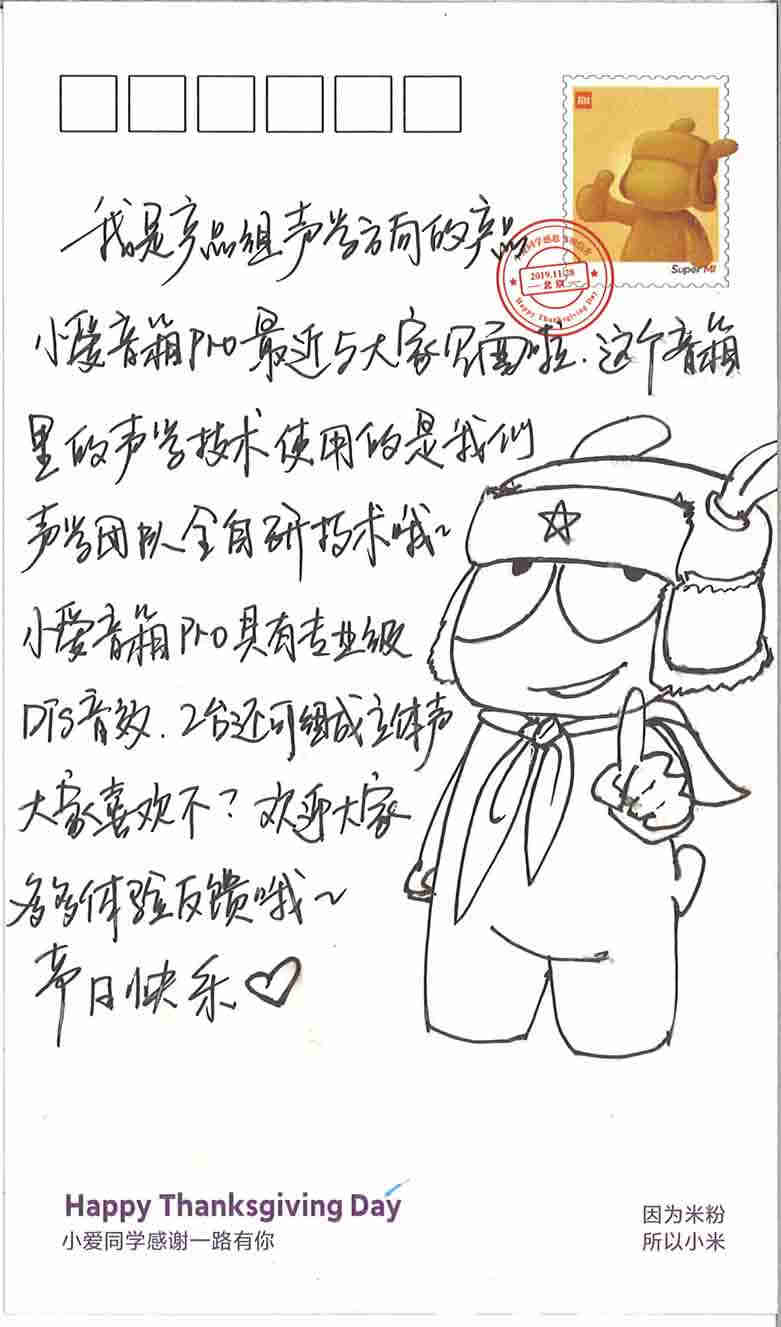 MI
Super MI
2019.11.28
北京
Happy Thanksgiving Day
我是产品组声学方向的产品
小爱音箱Pro最近与大家见面啦.这个音箱
里的声学技术使用的是我们
声学团队全自研技术哦~
小爱音箱Pro具有专业级
DTS音效.2台还可组成立体声
大家喜欢不?欢迎大家
多多体验反馈哦~
节日快乐♡
Happy Thanksgiving Day
小爱同学感谢一路有你
因为米粉
所以小米